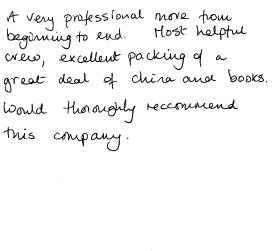 A very professional move from
beginning to end. Most helpful
crew, excellent packing of a
great deal of china and books.
Would thoroughly reccommend
this company.